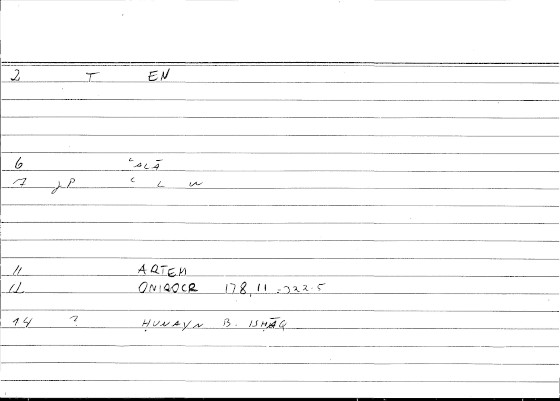 2 T EN
6 ʿALĀ
7 JP ʿ L W
11 ARTEM
12 ONIROCR 178,11 = 322.5
14 ? ḤUNAYN B. ISḤĀQ